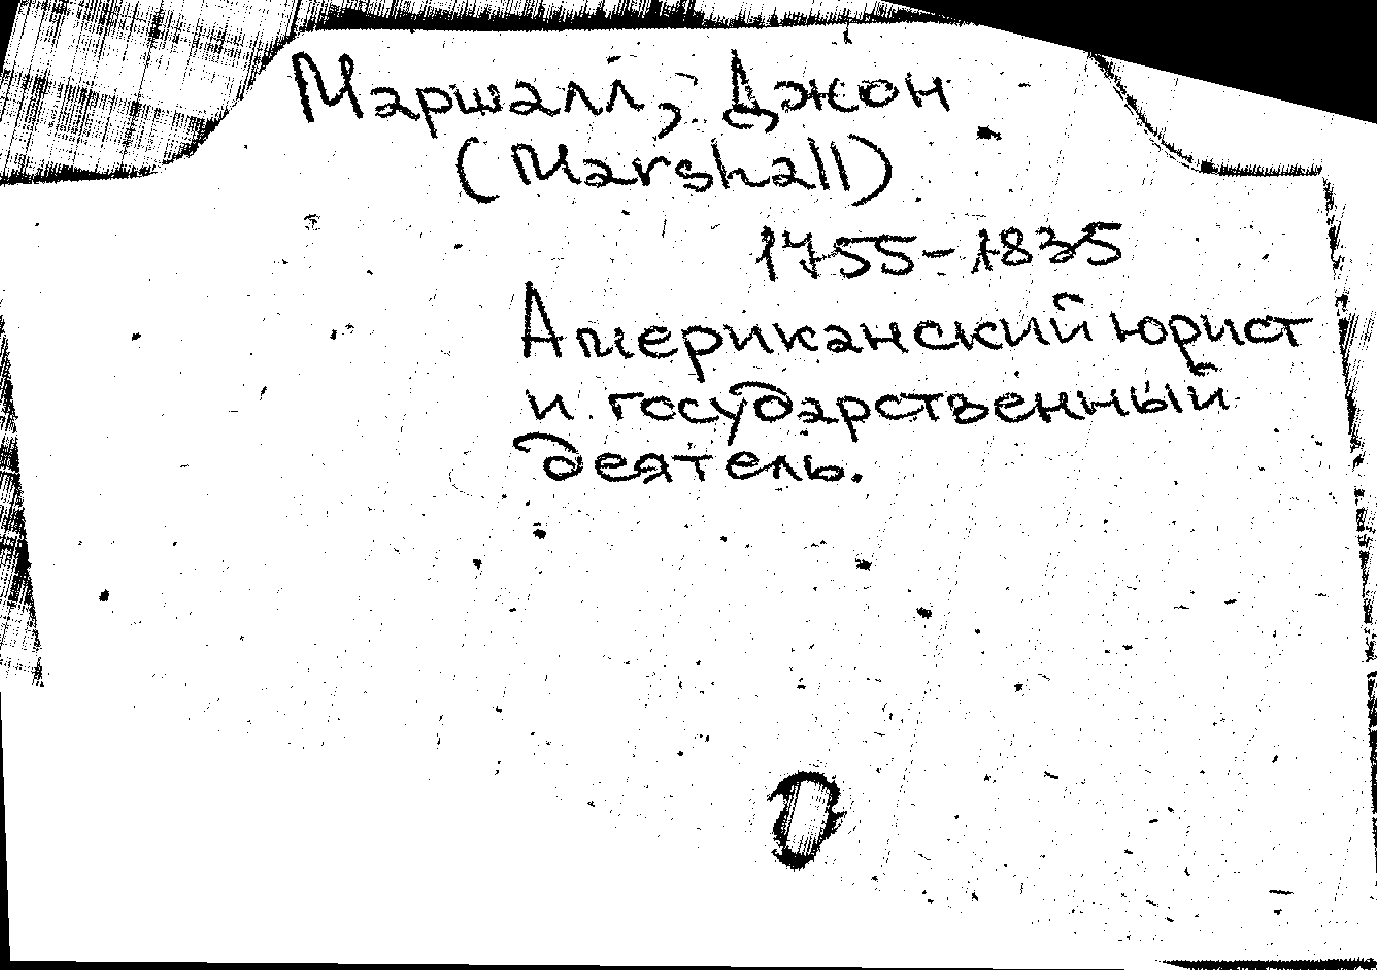 Маршалл, Джон
(Marshall)
1755-1835
Американский юрист
и государственный
деятель.